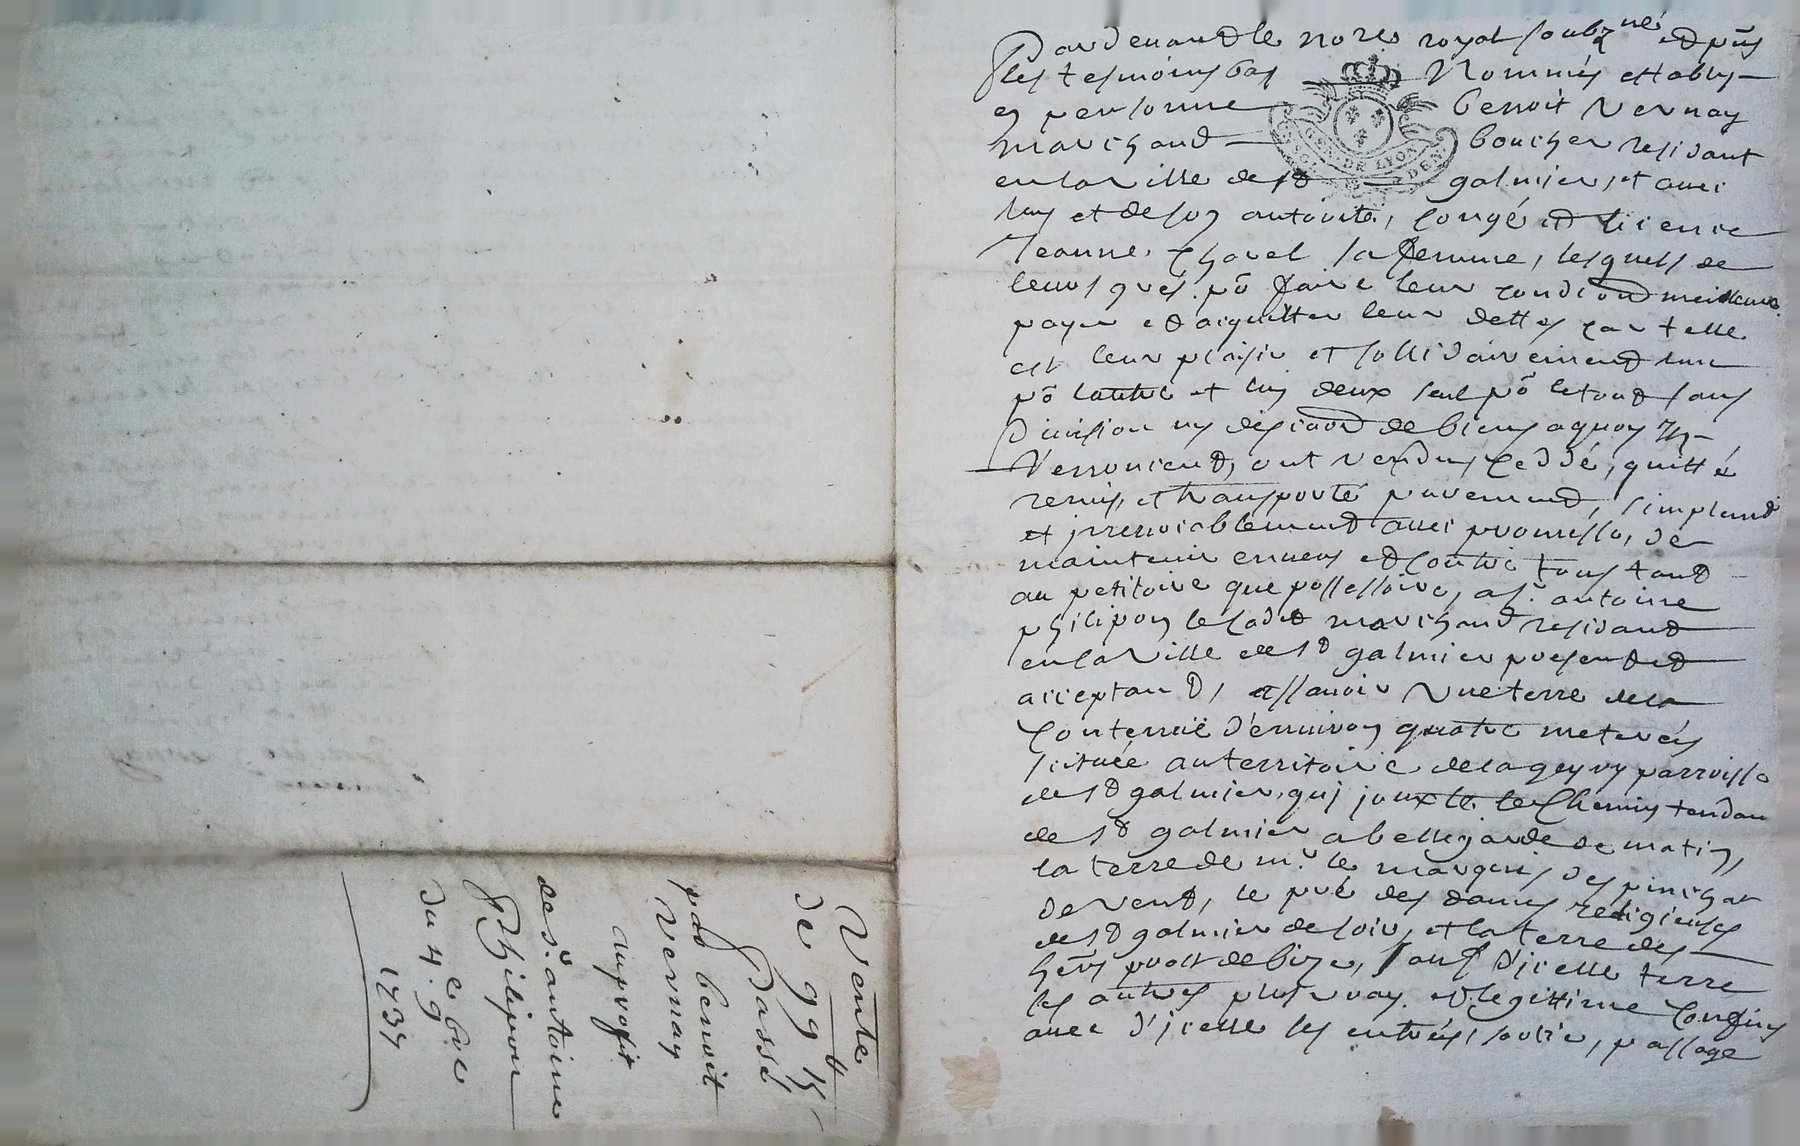 Vente
de 99 ₶ 15 s
Passé
par benoit
Vernay
au profit
de sr. antoine
Philipon
du 4e. 9bre
1737
Pardevant le no.re royal soubzné et pñs
les tesmoins bas Nommés estably
en personne benoit Vernay
marchand boucher residant
en la ville de st galmier, et avec
luy et de son autorité, congé et licence
Jeanne Chovel sa femme, lesquels de
leurs grés pō faire leur condiōn meilleure
payer et acquitter leur dettes car telle
est leur plaisir et sollidairement lun
pō lautre et lun deux seul pō le tout sans
division ny discution de biens a quoy Ils
renoncent, ont vendu, ceddé, quitté
remis, et transporté purement, simplemt
et jrrevocablement avec promesse, de
maintenir envers et contre tous tant
au petitoire que possessoire, a sr. antoine
philipon le cadet marchand residant
en la ville de st galmier present et
acceptant, assavoir Une terre de la
Contenuë d'environ quatre meterées
scituée au territoire de la parroisse
de st galmier, qui jouxte le Chemin tendant
de st galmier a bellegarde de matin,
la terre de mr. le marquis des
de vent, le pré des dames religieuses
de st galmier de soir, et la terre des
hērs de bize, sauf d'jcelle terre
les autres plus vray et legittime Confins
avec d'jcelle les entrées, sortie, passage
GEN. DE LYON